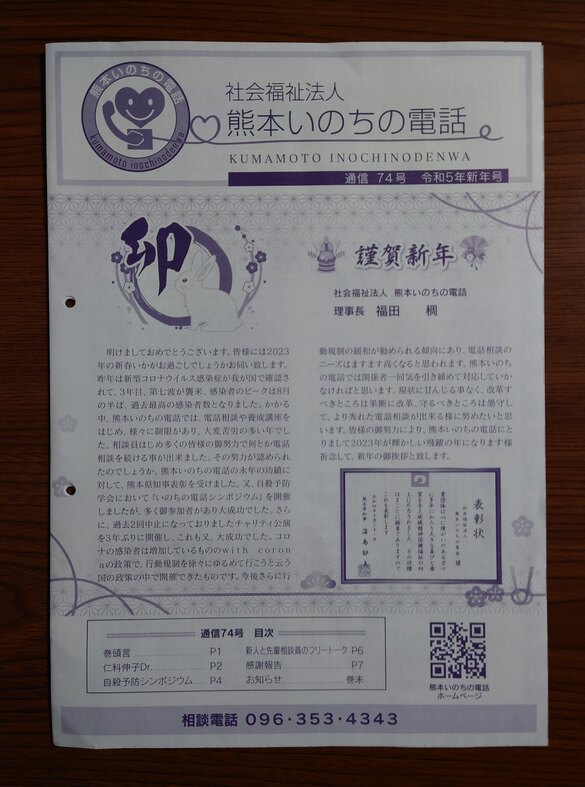 熊本いのちの電話
kumamoto inochinodenwa
社会福祉法人
熊本いのちの電話
KUMAMOTO INOCHINODENWA
通信 74号 令和5年新年号
卯
謹賀新年
社会福祉法人 熊本いのちの電話
理事長 福田 稠
明けましておめでとうございます。皆様には2023
年の新春いかがお過ごしでしょうかお伺い致します。
昨年は新型コロナウイルス感染症が我が国で確認され
て、3年目、第七波が襲来、感染者のピークは8月
の半ば、過去最高の感染者数となりました。かかる
中、熊本いのちの電話では、電話相談や養成講座を
はじめ、様々に制限があり、大変苦労の多い年でし
た。相談員はじめ多くの皆様の御努力で何とか電話相
談を続ける事が出来ました。その努力が認められ
たのでしょうか、熊本いのちの電話の永年の功績に
対して、熊本県知事表彰を受けました。又、自殺予防
学会において「いのちの電話シンポジウム」を開催
しましたが、多く御参加者があり大成功でした。さら
に、過去2回中止になっておりましたチャリティ公演
を3年ぶりに開催し、これも又、大成功でした。コロ
ナの感染者は増加しているもののwith coron
aの政策で、行動規制を徐々にゆるめて行こうと云う
国の政策の中で開催できたものです。今後さらに行
動規制の緩和が勧められる傾向にあり、電話相談の
ニーズはますます高くなると思われます。熊本いのち
の電話では関係者一同気を引き締めて対応していか
なければと思います。現状に甘んじる事なく、改革す
べきところは果断に改革、守るべきところは墨守し
て、より秀れた電話相談が出来る様に努めたいと思い
ます。皆様の御努力により、熊本いのちの電話にと
りまして2023年が輝かしい飛躍の年になります様
祈念して、新年の御挨拶と致します。
表彰状
社会福祉法人
熊本いのちの電話 様
通信74号 目次
巻頭言 P1
仁科伸子Dr. P2
自殺予防シンポジウム P4
新人と先輩相談員のフリートーク P6
感謝報告 P7
お知らせ 巻末
熊本いのちの電話
ホームページ
相談電話 096・353・4343